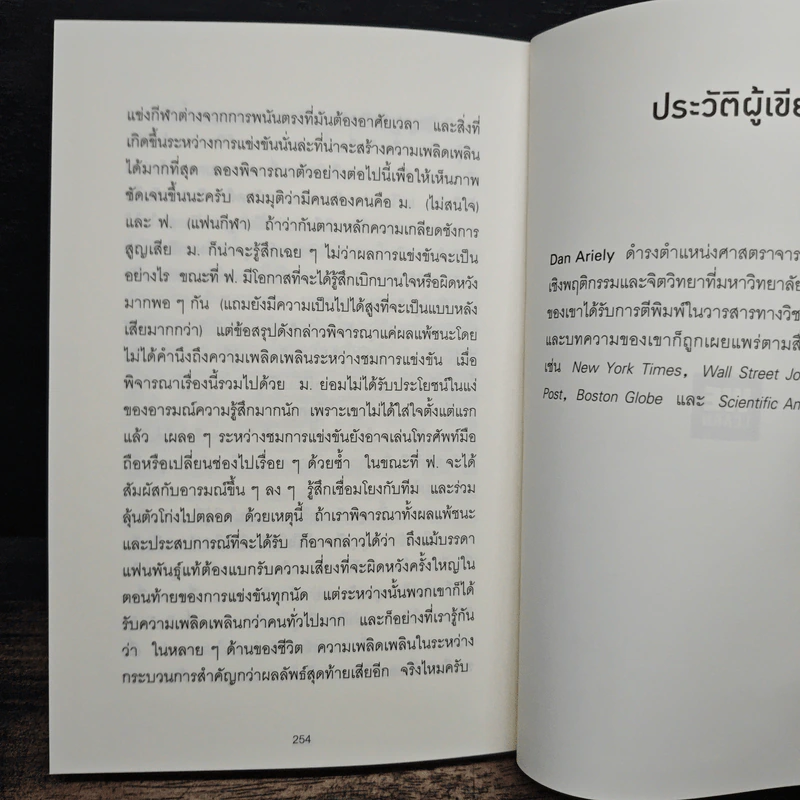 แข่งกีฬาต่างจากการพนันตรงที่มันต้องอาศัยเวลา และสิ่งที่
เกิดขึ้นระหว่างการแข่งขันนั่นล่ะที่น่าจะสร้างความเพลิดเพลิน
ได้มากที่สุด ลองพิจารณาตัวอย่างต่อไปนี้เพื่อให้เห็นภาพ
ชัดเจนขึ้นนะครับ สมมุติว่ามีคนสองคนคือ ม. (ไม่สนใจ)
และ ฟ. (แฟนกีฬา) ถ้าว่ากันตามหลักความเกลียดชังการ
สูญเสีย ม. ก็น่าจะรู้สึกเฉย ๆ ไม่ว่าผลการแข่งขันจะเป็น
อย่างไร ขณะที่ ฟ. มีโอกาสที่จะได้รู้สึกเบิกบานใจหรือผิดหวัง
มากพอ ๆ กัน (แถมยังมีความเป็นไปได้สูงที่จะเป็นแบบหลัง
เสียมากกว่า) แต่ข้อสรุปดังกล่าวพิจารณาแค่ผลแพ้ชนะโดย
ไม่ได้คำนึงถึงความเพลิดเพลินระหว่างชมการแข่งขัน เมื่อ
พิจารณาเรื่องนี้รวมไปด้วย ม. ย่อมไม่ได้รับประโยชน์ในแง่
ของอารมณ์ความรู้สึกมากนัก เพราะเขาไม่ได้ใส่ใจตั้งแต่แรก
แล้ว เผลอ ๆ ระหว่างชมการแข่งขันยังอาจเล่นโทรศัพท์มือ
ถือหรือเปลี่ยนช่องไปเรื่อย ๆ ด้วยซ้ำ ในขณะที่ ฟ. จะได้
สัมผัสกับอารมณ์ขึ้น ๆ ลง ๆ รู้สึกเชื่อมโยงกับทีม และร่วม
ลุ้นตัวโก่งไปตลอด ด้วยเหตุนี้ ถ้าเราพิจารณาทั้งผลแพ้ชนะ
และประสบการณ์ที่จะได้รับ ก็อาจกล่าวได้ว่า ถึงแม้บรรดา
แฟนพันธุ์แท้ต้องแบกรับความเสี่ยงที่จะผิดหวังครั้งใหญ่ใน
ตอนท้ายของการแข่งขันทุกนัด แต่ระหว่างนั้นพวกเขาก็ได้
รับความเพลิดเพลินกว่าคนทั่วไปมาก และก็อย่างที่เรารู้กัน
ว่า ในหลาย ๆ ด้านของชีวิต ความเพลิดเพลินในระหว่าง
กระบวนการสำคัญกว่าผลลัพธ์สุดท้ายเสียอีก จริงไหมครับ
254
ประวัติผู้เขีย
Dan Ariely ดำรงตำแหน่งศาสตราจาร
เชิงพฤติกรรมและจิตวิทยาที่มหาวิทยาลัย
ของเขาได้รับการตีพิมพ์ในวารสารทางวิช
และบทความของเขาก็ถูกเผยแพร่ตามสื
เช่น New York Times, Wall Street Jo
Post, Boston Globe และ Scientific Am